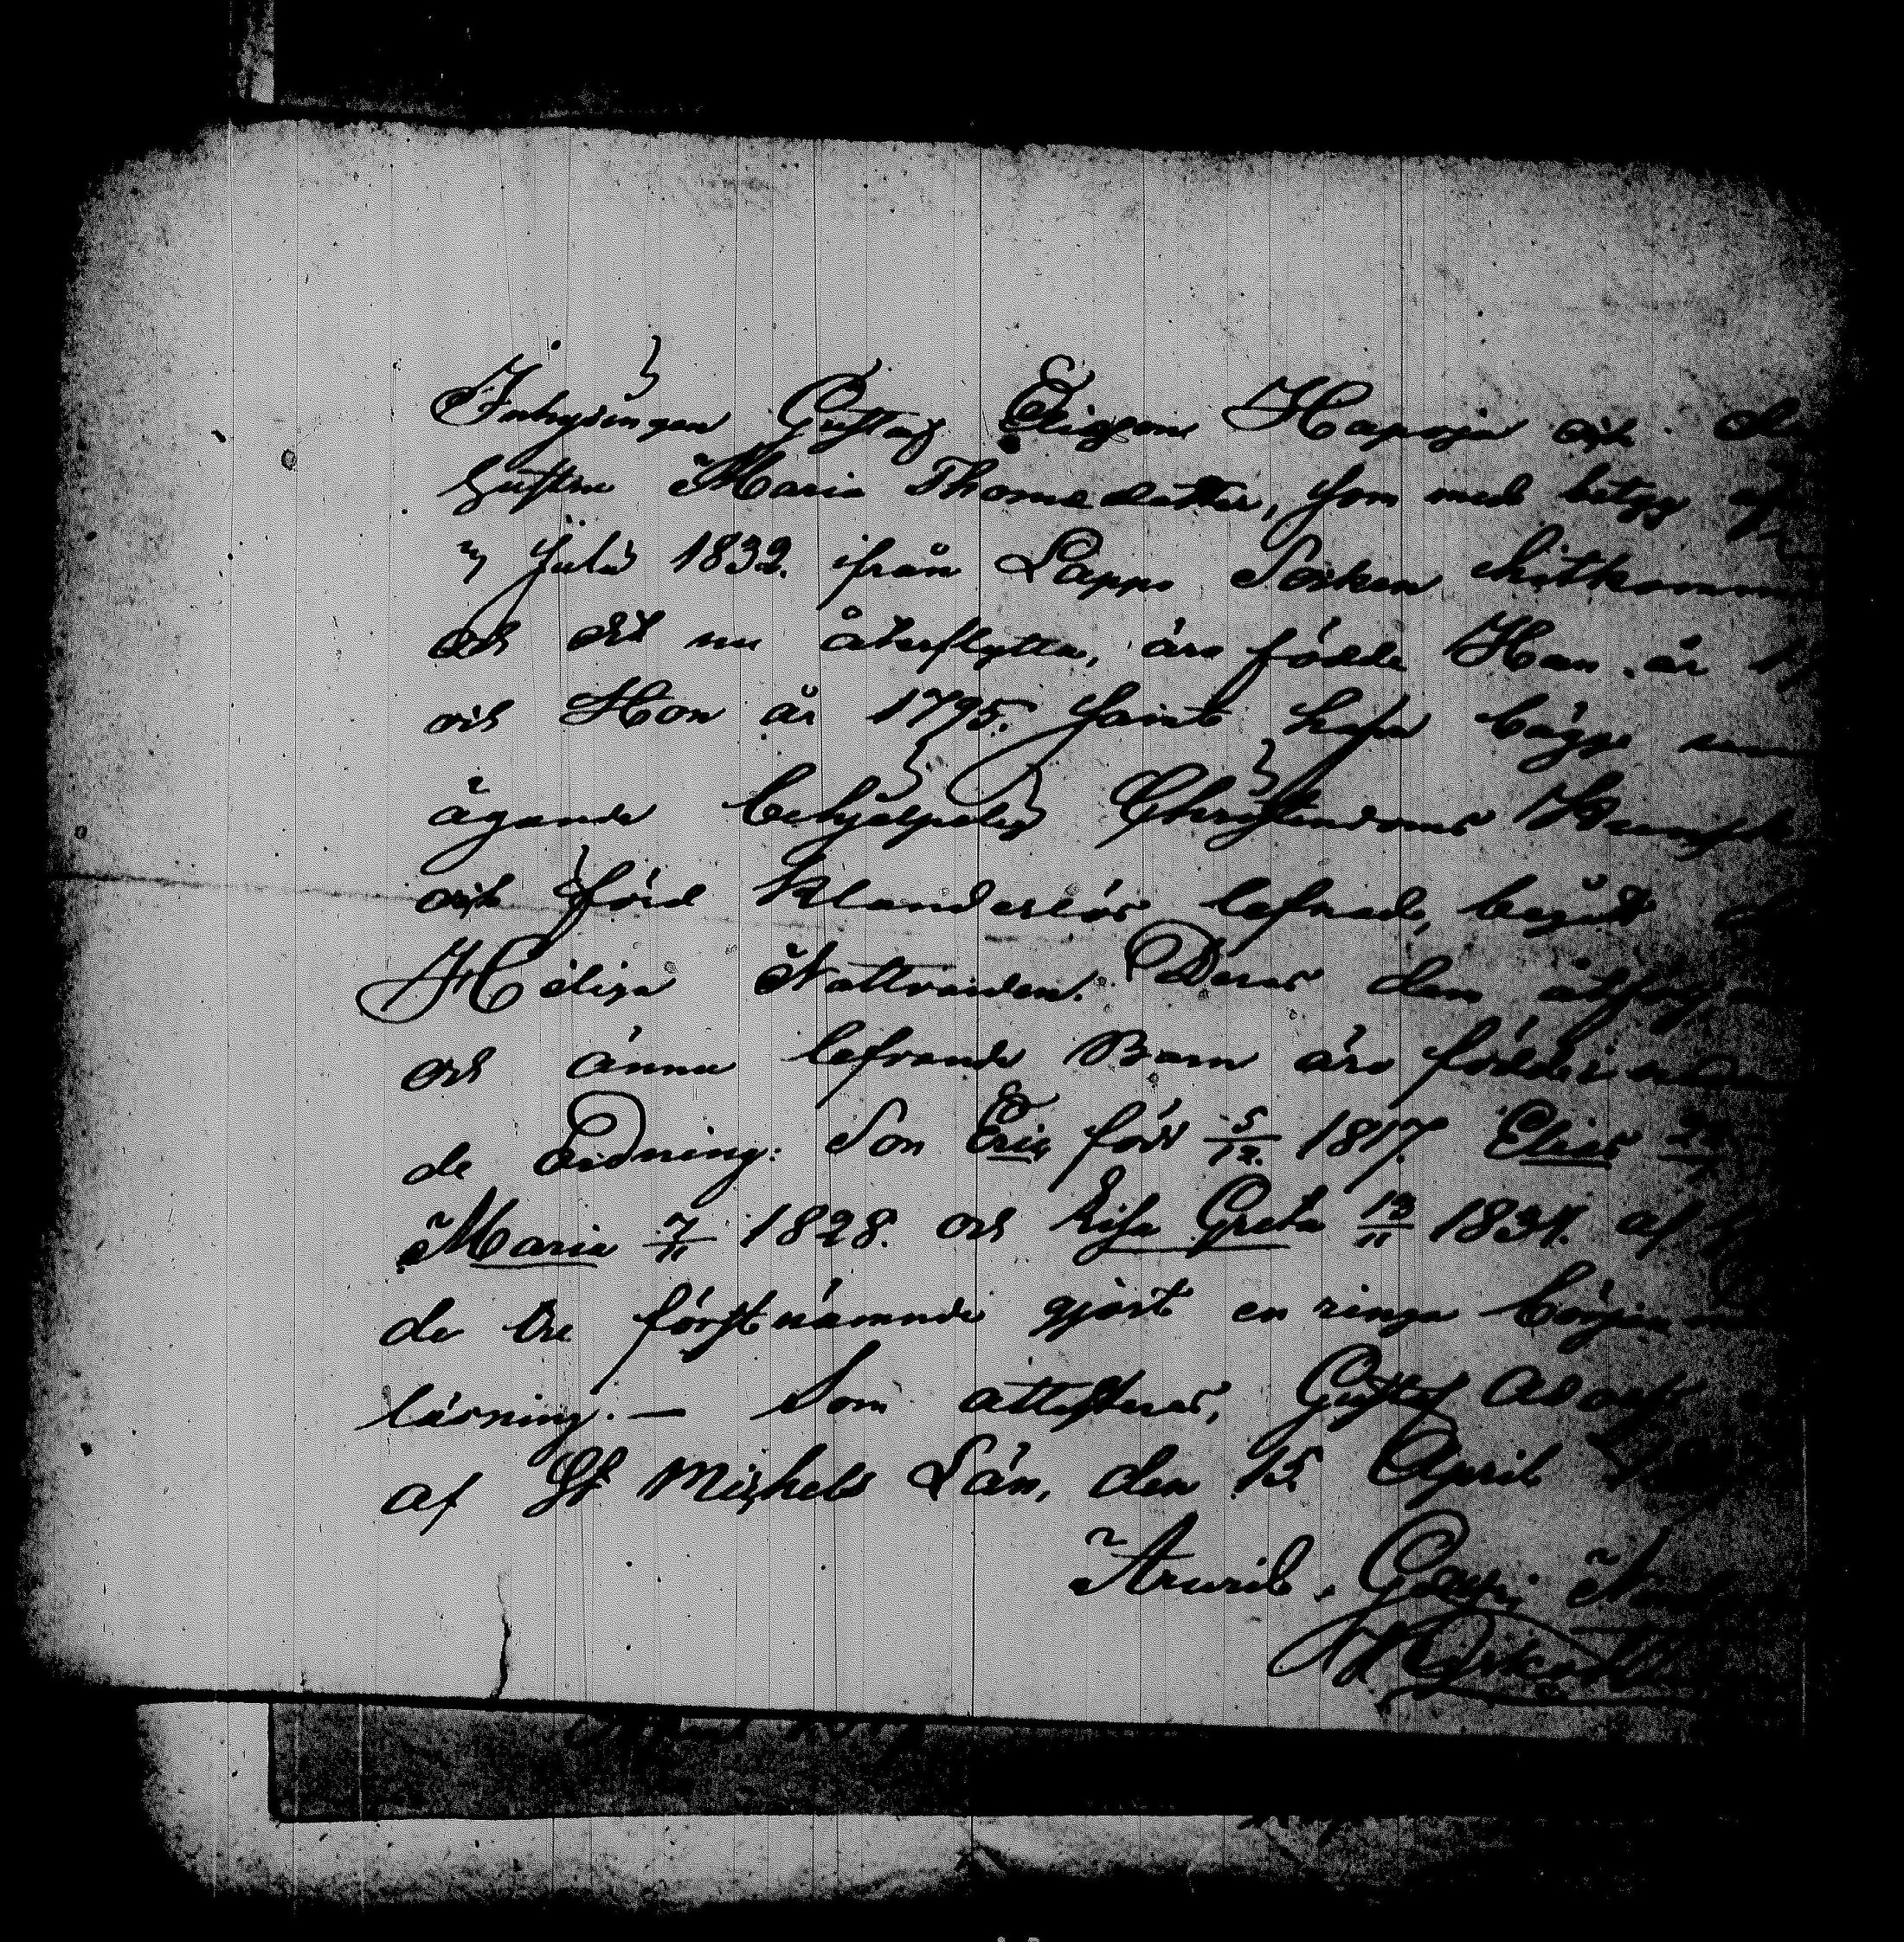 Inhysingen Gustaf Ericsson Hapoja och
hustru Maria Thomedotter, som med betyg af
7 Julii 1832. ifrån Lappo Socken hitkomm
och dit nu återflytta, äro födde Han år
och Hon år 1795. samt hafva bägge
ägande behjelpelig Christendoms Kunsk
och förd klanderlös lefnad, begått
Heliga Nattvarden. Deras dem åtfölj
och ännu lefvande Barn äro födde i
de Ordning: Son Eric född 5/12. 1817. Elias
Maria 7/11 1828. och Lisa Greta 13/11 1831. af
de tre först nämnde gjort en ringa börjen
läsning. — Som attesterar, Gustaf Adolf
af St Michels Län, den 15 April